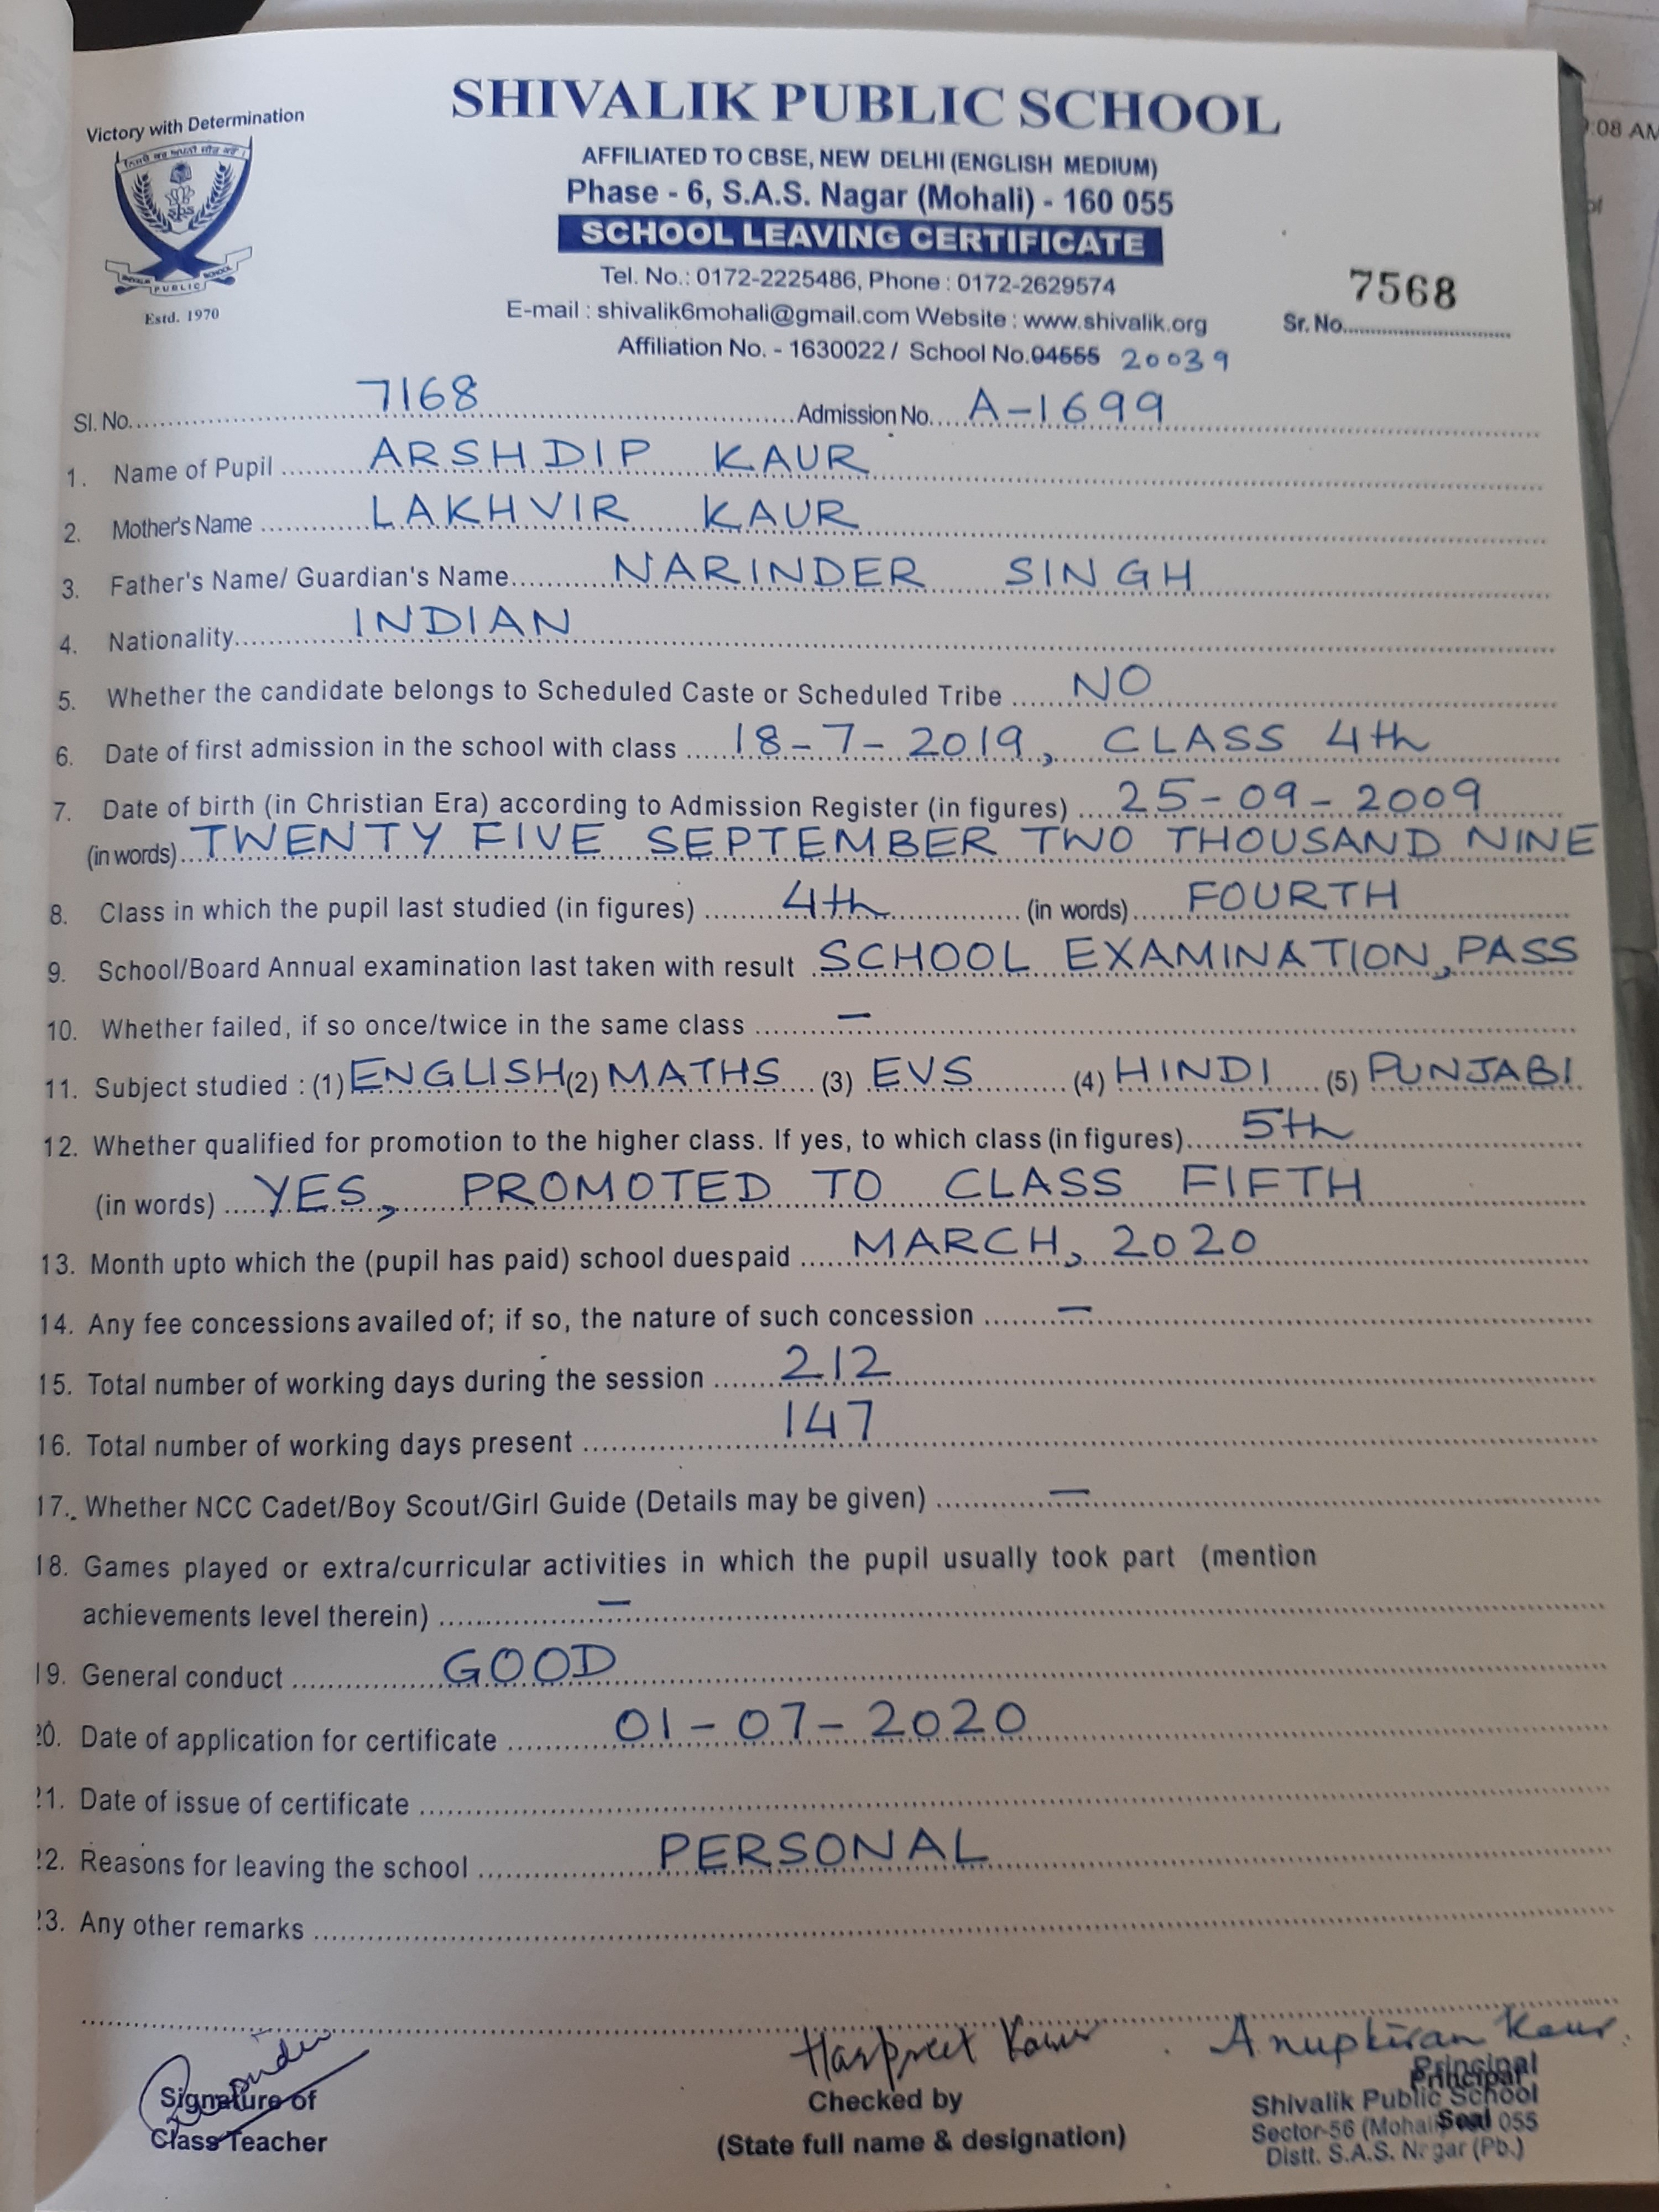 SHIVALIK PUBLIC SCHOOL
Victory with Determination
AFFILIATED TO CBSE, NEW DELHI (ENGLISH MEDIUM)
Phase - 6, S.A.S. Nagar (Mohali) - 160 055
SCHOOL LEAVING CERTIFICATE
Tel. No.: 0172-2225486, Phone : 0172-2629574
E-mail : shivalik6mohali@gmail.com Website : www.shivalik.org
Affiliation No. - 1630022 / School No.04555 20039
PUBLIC SCHOOL
Estd. 1970
7568
Sr. No.
:08 AM
Sl. No. 7168 Admission No. A-1699
1. Name of Pupil ARSHDIP KAUR
2. Mother's Name LAKHVIR KAUR
3. Father's Name/ Guardian's Name NARINDER SINGH
4. Nationality INDIAN
5. Whether the candidate belongs to Scheduled Caste or Scheduled Tribe NO
6. Date of first admission in the school with class 18-7-2019, CLASS 4th
7. Date of birth (in Christian Era) according to Admission Register (in figures) 25-09-2009
(in words) TWENTY FIVE SEPTEMBER TWO THOUSAND NINE
8. Class in which the pupil last studied (in figures) 4th (in words) FOURTH
9. School/Board Annual examination last taken with result SCHOOL EXAMINATION, PASS
10. Whether failed, if so once/twice in the same class —
11. Subject studied : (1) ENGLISH (2) MATHS (3) EVS (4) HINDI (5) PUNJABI
12. Whether qualified for promotion to the higher class. If yes, to which class (in figures) 5th
(in words) YES, PROMOTED TO CLASS FIFTH
13. Month upto which the (pupil has paid) school duespaid MARCH, 2020
14. Any fee concessions availed of; if so, the nature of such concession —
15. Total number of working days during the session 212
16. Total number of working days present 147
17. Whether NCC Cadet/Boy Scout/Girl Guide (Details may be given) —
18. Games played or extra/curricular activities in which the pupil usually took part (mention
achievements level therein) —
19. General conduct GOOD
20. Date of application for certificate 01-07-2020
21. Date of issue of certificate
22. Reasons for leaving the school PERSONAL
23. Any other remarks
Harpreet Kaur Anupkiran Kaur
Signature of
Class Teacher
Checked by
(State full name & designation)
Principal
Principal
Shivalik Public School
Seal
Sector-56 (Mohali) 055
Distt. S.A.S. Nagar (Pb.)